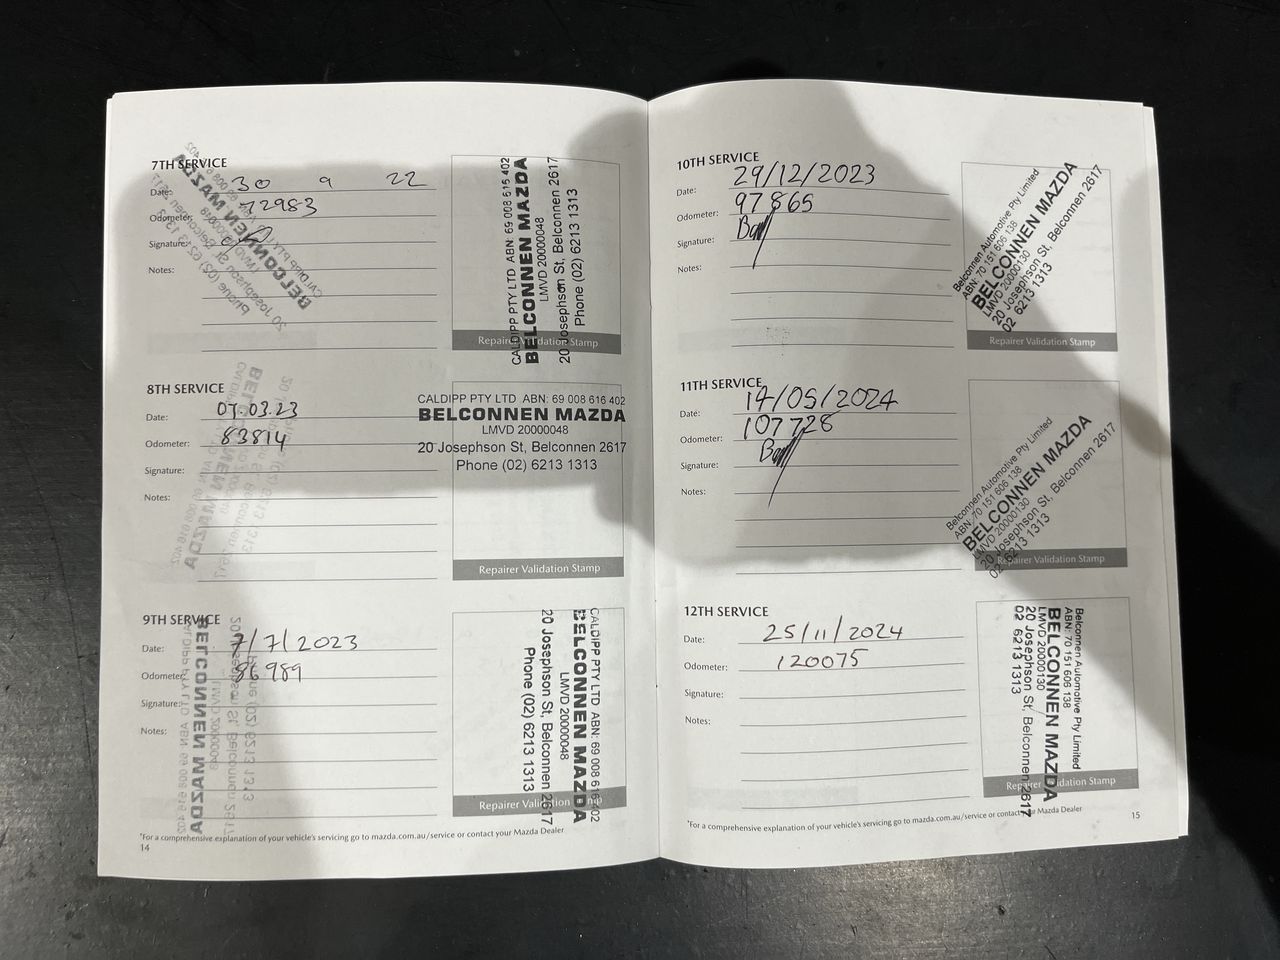 7TH SERVICE
Date: 30 9 22
Odometer: 72983
Signature:
Notes:
CALDIPP PTY LTD ABN: 69 008 616 402
BELCONNEN MAZDA
LMVD 20000048
20 Josephson St, Belconnen 2617
Phone (02) 6213 1313
Repairer Validation Stamp
8TH SERVICE
Date: 07.03.23
Odometer: 83814
Signature:
Notes:
CALDIPP PTY LTD ABN: 69 008 616 402
BELCONNEN MAZDA
LMVD 20000048
20 Josephson St, Belconnen 2617
Phone (02) 6213 1313
Repairer Validation Stamp
9TH SERVICE
Date: 7/7/2023
Odometer: 86989
Signature:
Notes:
CALDIPP PTY LTD ABN: 69 008 616 402
BELCONNEN MAZDA
LMVD 20000048
20 Josephson St, Belconnen 2617
Phone (02) 6213 1313
Repairer Validation Stamp
*For a comprehensive explanation of your vehicle's servicing go to mazda.com.au/service or contact your Mazda Dealer
14
10TH SERVICE
Date: 29/12/2023
Odometer: 97865
Signature:
Notes:
Belconnen Automotive Pty Limited
ABN: 70 151 606 138
BELCONNEN MAZDA
LMVD 20000130
20 Josephson St, Belconnen 2617
02 6213 1313
Repairer Validation Stamp
11TH SERVICE
Date: 17/05/2024
Odometer: 107728
Signature:
Notes:
Belconnen Automotive Pty Limited
ABN: 70 151 606 138
BELCONNEN MAZDA
LMVD 20000130
20 Josephson St, Belconnen 2617
02 6213 1313
Repairer Validation Stamp
12TH SERVICE
Date: 25/11/2024
Odometer: 120075
Signature:
Notes:
Belconnen Automotive Pty Limited
ABN: 70 151 606 138
BELCONNEN MAZDA
LMVD 20000130
20 Josephson St, Belconnen 2617
02 6213 1313
Repairer Validation Stamp
*For a comprehensive explanation of your vehicle's servicing go to mazda.com.au/service or contact your Mazda Dealer
15